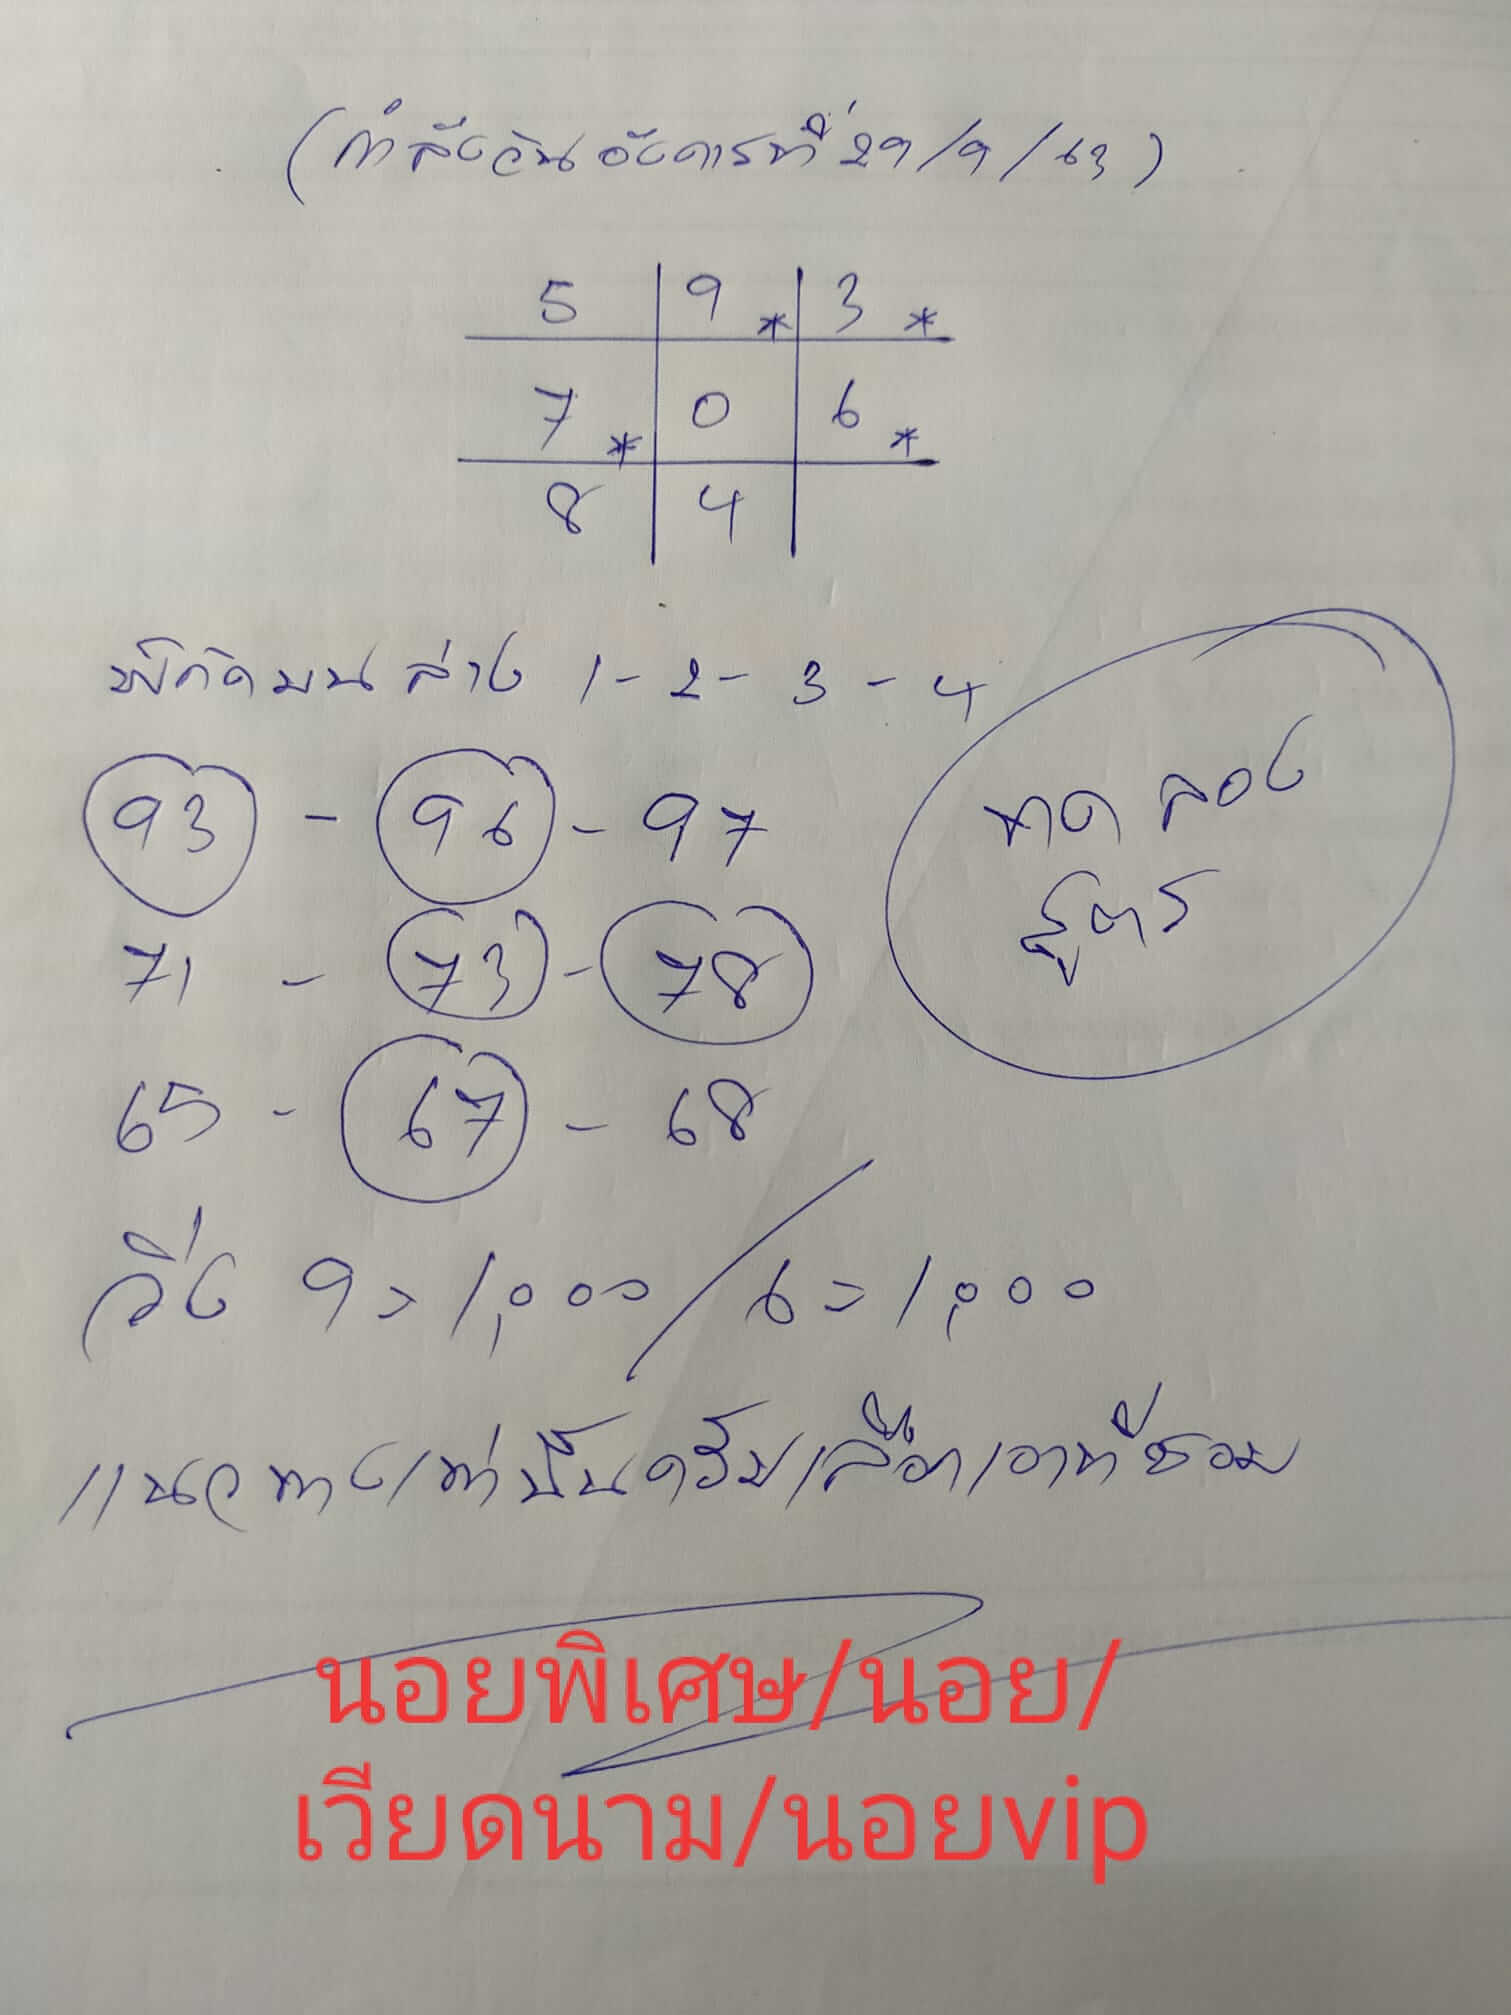 (กำลังวันอังคารที่ 29/9/63)
5 9* 3*
7* 0 6*
8 4
พิกัดบน ล่าง 1-2-3-4
93 - 96 - 97
71 - 73 - 78
65 - 67 - 68
ทดลอง
สูตร
วิ่ง 9=1,000/6=1,000
แนวทางเท่านั้นครับเลือกเอาที่ชอบ
นอยพิเศษ/นอย/
เวียดนาม/นอยvip